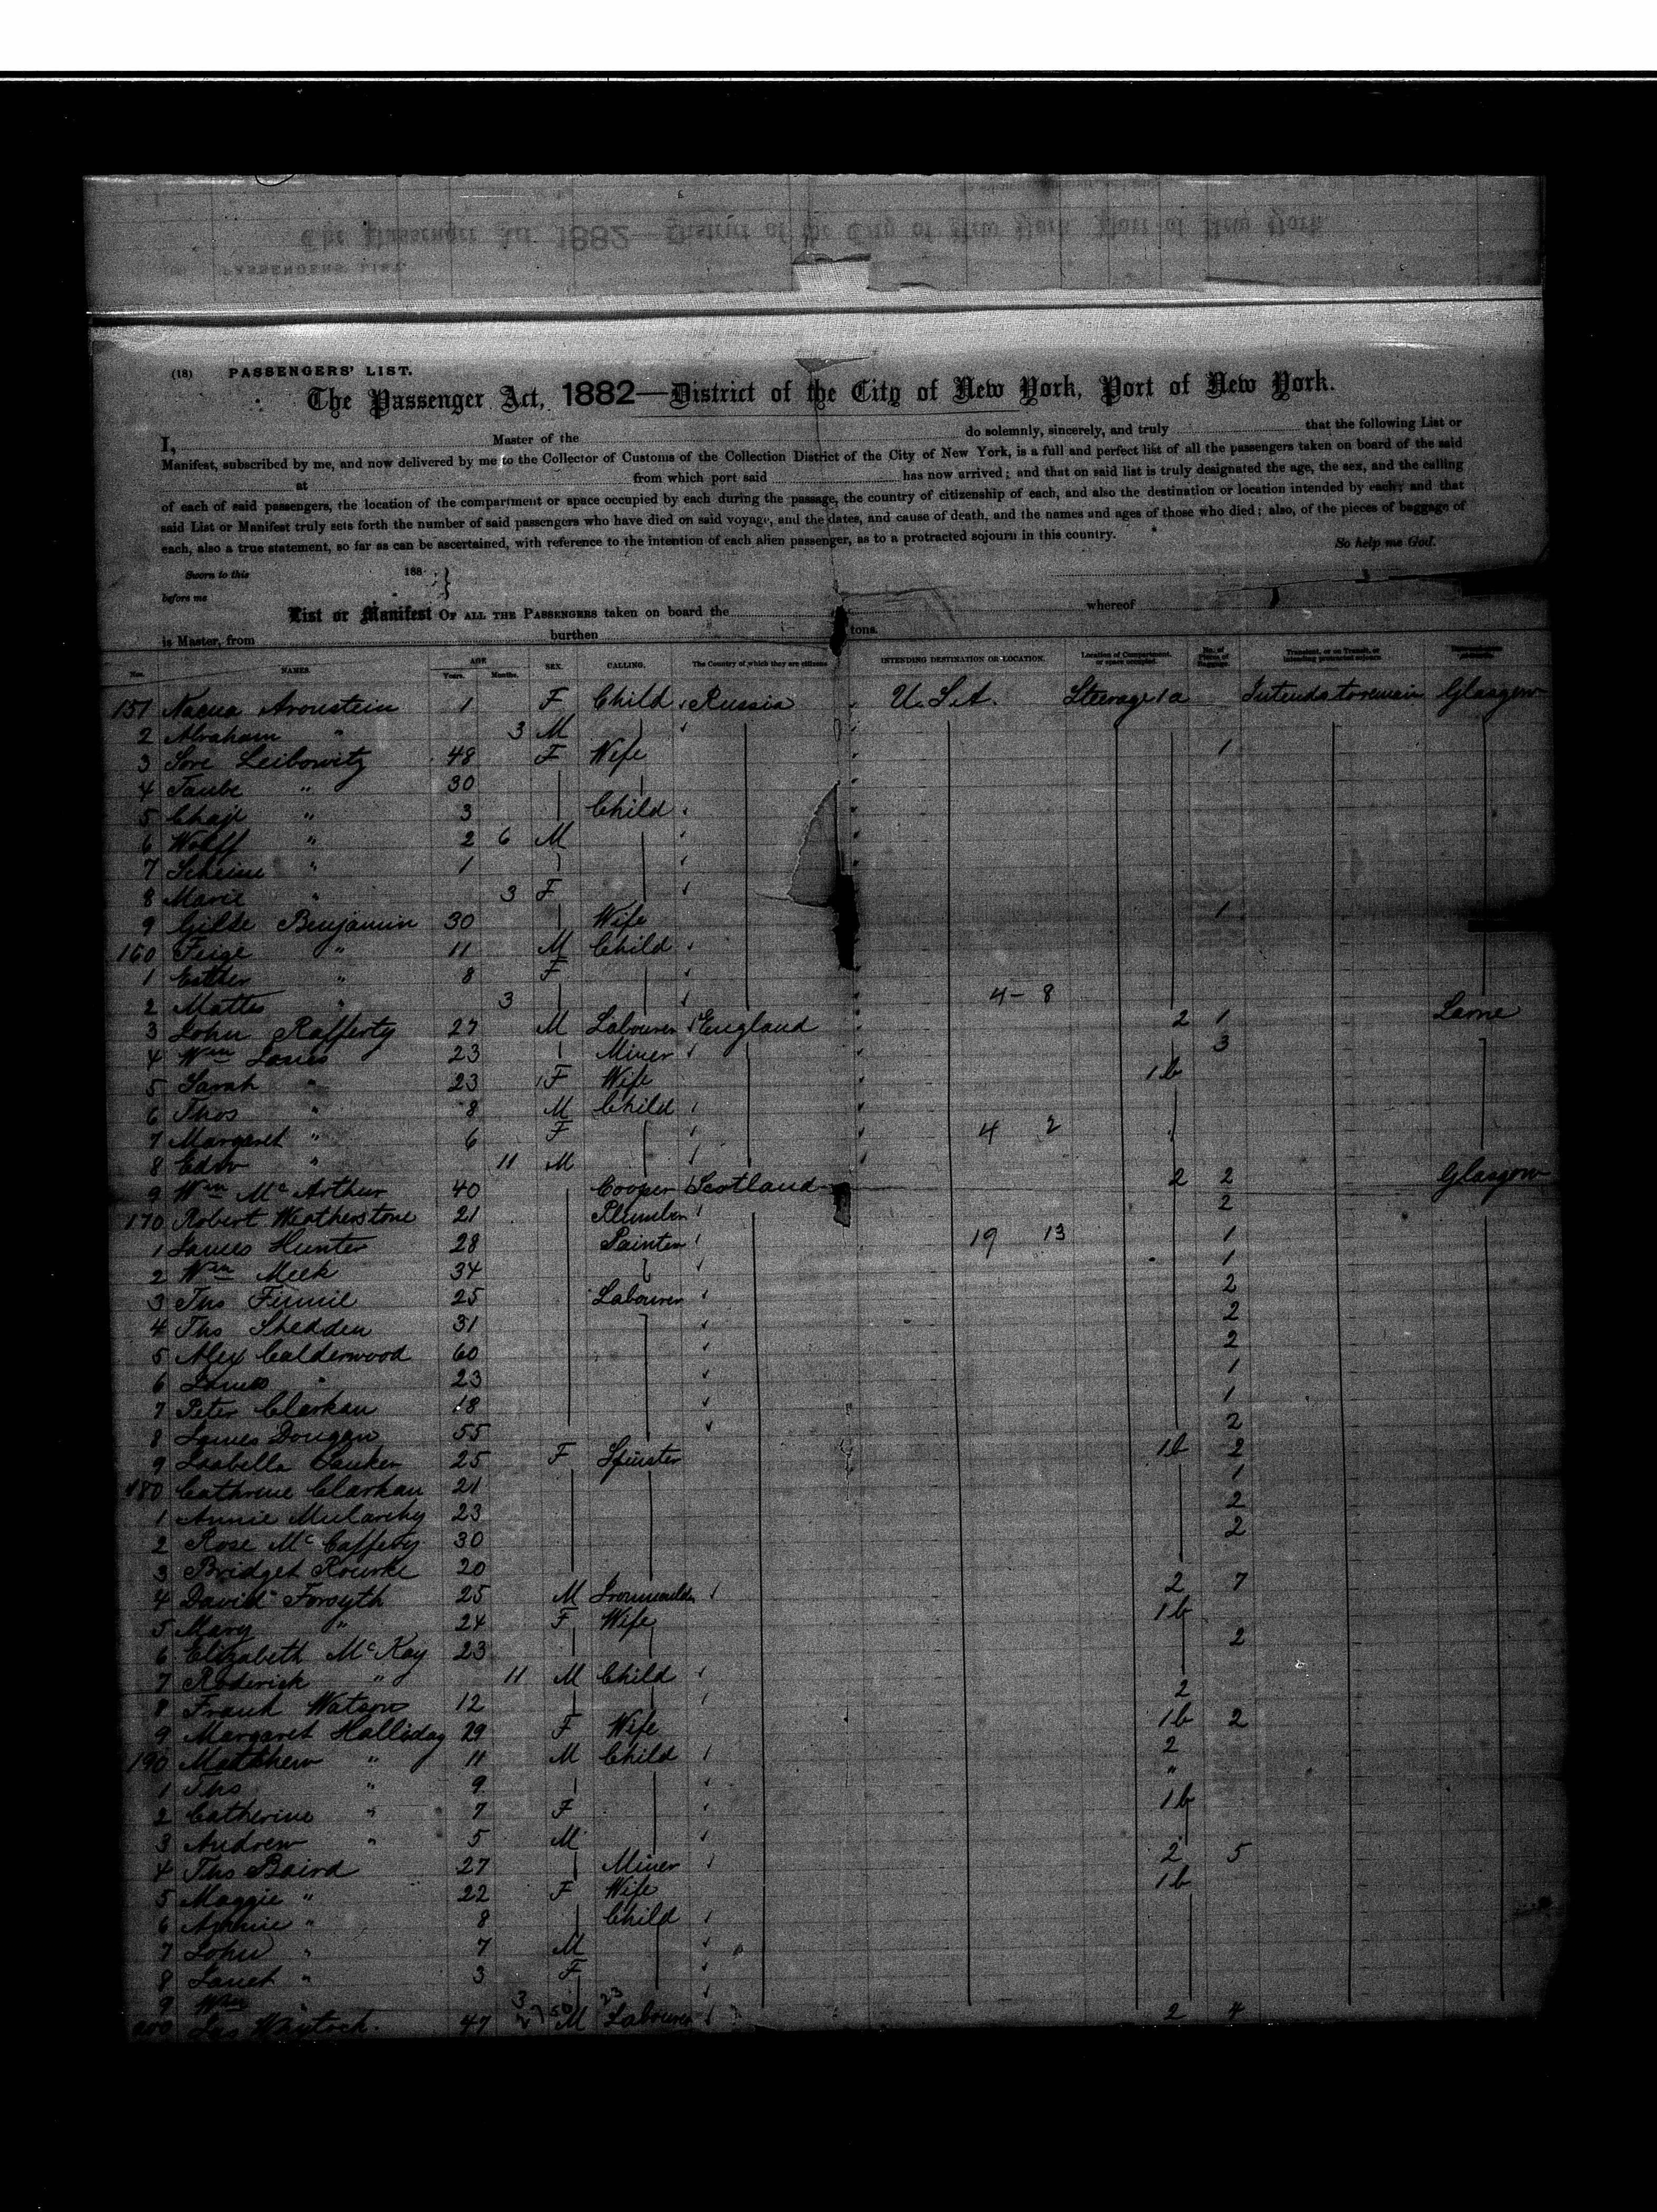 (18) PASSENGERS' LIST.
The Passenger Act, 1882—District of the City of New York, Port of New York.
I, Master of the do solemnly, sincerely, and truly that the following List or
Manifest, subscribed by me, and now delivered by me to the Collector of Customs of the Collection District of the City of New York, is a full and perfect list of all the passengers taken on board of the said
at from which port said has now arrived; and that on said list is truly designated the age, the sex, and the calling
of each of said passengers, the location of the compartment or space occupied by each during the passage, the country of citizenship of each, and also the destination or location intended by each; and that
said List or Manifest truly sets forth the number of said passengers who have died on said voyage, and the dates, and cause of death, and the names and ages of those who died; also, of the pieces of baggage of
each, also a true statement, so far as can be ascertained, with reference to the intention of each alien passenger, as to a protracted sojourn in this country. So help me God.
Sworn to this 188
before me
List or Manifest OF ALL THE PASSENGERS taken on board the whereof
is Master, from burthen tons.
Nos. NAMES. AGE Years. Months. SEX. CALLING. The Country of which they are citizens INTENDING DESTINATION OR LOCATION. Location of Compartment, or space occupied. No. of Pieces of Baggage. Transient, or on Transit, or intending protracted sojourn.
151 Aronstein 1 F Child Russia U.S.A. Steerage 1a Intends to remain Glasgow
2 Abraham " 3 M
3 Sore Leibowitz 48 F Wife 1
4 Taube " 30
5 Chaje " 3 Child
6 Wolff " 2 6 M
7 " 1
8 Marie " 3 F
9 Gilde Benjamin 30 Wife 1
160 Feige " 11 M Child
1 Esther " 8 F
2 Mattes " 3 4-8
3 John Rafferty 27 M Labourer England 2 1 Larne
4 Wm 23 Miner 3
5 Sarah " 23 F Wife 1b
6 Thos " 8 M Child
7 Margaret " 6 F 4 2
8 Edw " 11 M
9 Wm McArthur 40 Cooper Scotland 2 2 Glasgow
170 Robert Weatherstone 21 Plumber 2
1 James Hunter 28 Painter 19 13 1
2 Wm Meek 34 1
3 Ths 25 Labourer 2
4 Ths Shedden 31 2
5 Alex Calderwood 60 2
6 James " 23 1
7 Peter Clarkan 18 1
8 James Dougan 55 2
9 Isabella 25 F Spinster 1b 2
180 Cathrine Clarkan 21 1
1 Annie 23 2
2 Rose McCaffery 30 2
3 Bridget Rourke 20
4 David Forsyth 25 M Ironmoulder 2 7
5 Mary " 24 F Wife 1b
6 Elizabeth McKay 23 2
7 Roderick " 11 M Child
8 Frank Watson 12 2
9 Margaret Halliday 29 F Wife 1b 2
190 Matthew " 11 M Child 2
1 Ths " 9 "
2 Catherine " 7 F 1b
3 Andrew " 5 M
4 Ths Baird 27 Miner 2 5
5 Maggie " 22 F Wife 1b
6 Annie " 8 Child
7 John " 7 M
8 Janet " 3 F
9 Wm 3 23
200 Jas 47 M Labourer 2 4